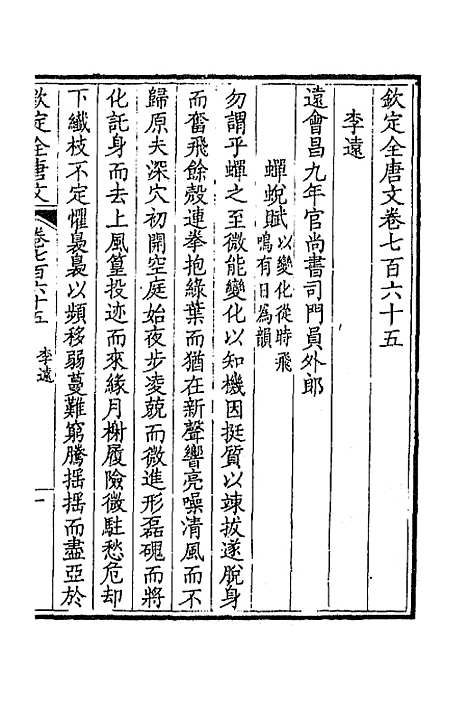 欽定全唐文卷七百六十五
李遠
遠會昌九年官尚書司門員外郎
蟬蛻賦以變化從時飛鳴有日為韻
勿謂乎蟬之至微能變化以知機因挺質以竦拔遂脫身
而奮飛餘殼連拳抱綠葉而猶在新聲響亮噪清風而不
歸原夫深穴初開空庭始夜步凌兢而微進形磊磈而將
化託身而去上風篁投迹而來緣月榭履險微駐愁危却
下纖枝不定懼裊裊以頻移弱蔓難窮騰揺揺而盡亞於
欽定全唐文
卷七百六十五
李遠
一